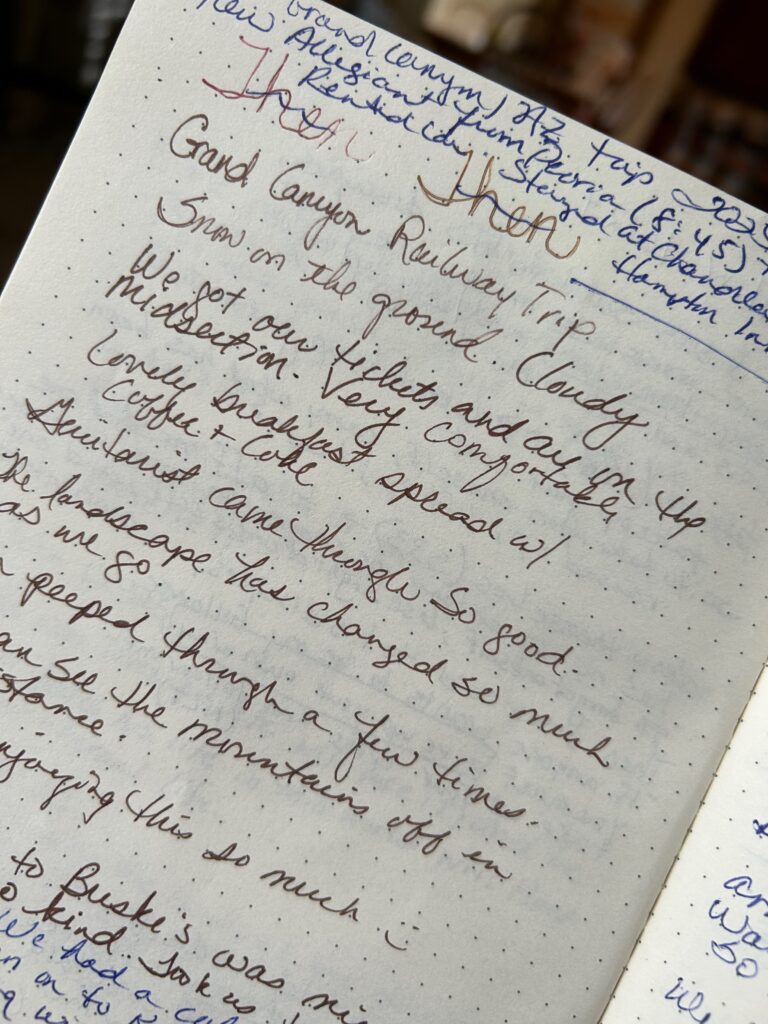 Grand Canyon, AZ trip 2225
Allegiant from Peoria (8:45)
Rented car Stayed at Chandler
Hampton Inn
Then
Then
Grand Canyon Railway Trip
Snow on the ground. Cloudy
We got our tickets and are on the
midsection. Very comfortable,
Lovely breakfast spread w/
Coffee + Coke
Guitarist came through So good.
The landscape has changed so much
as we go.
peeped through a few times.
an see the mountains off in
stance.
njoying this so much
to Buske's was
kind. Took us
We had a
on to
am
Wa
so
We